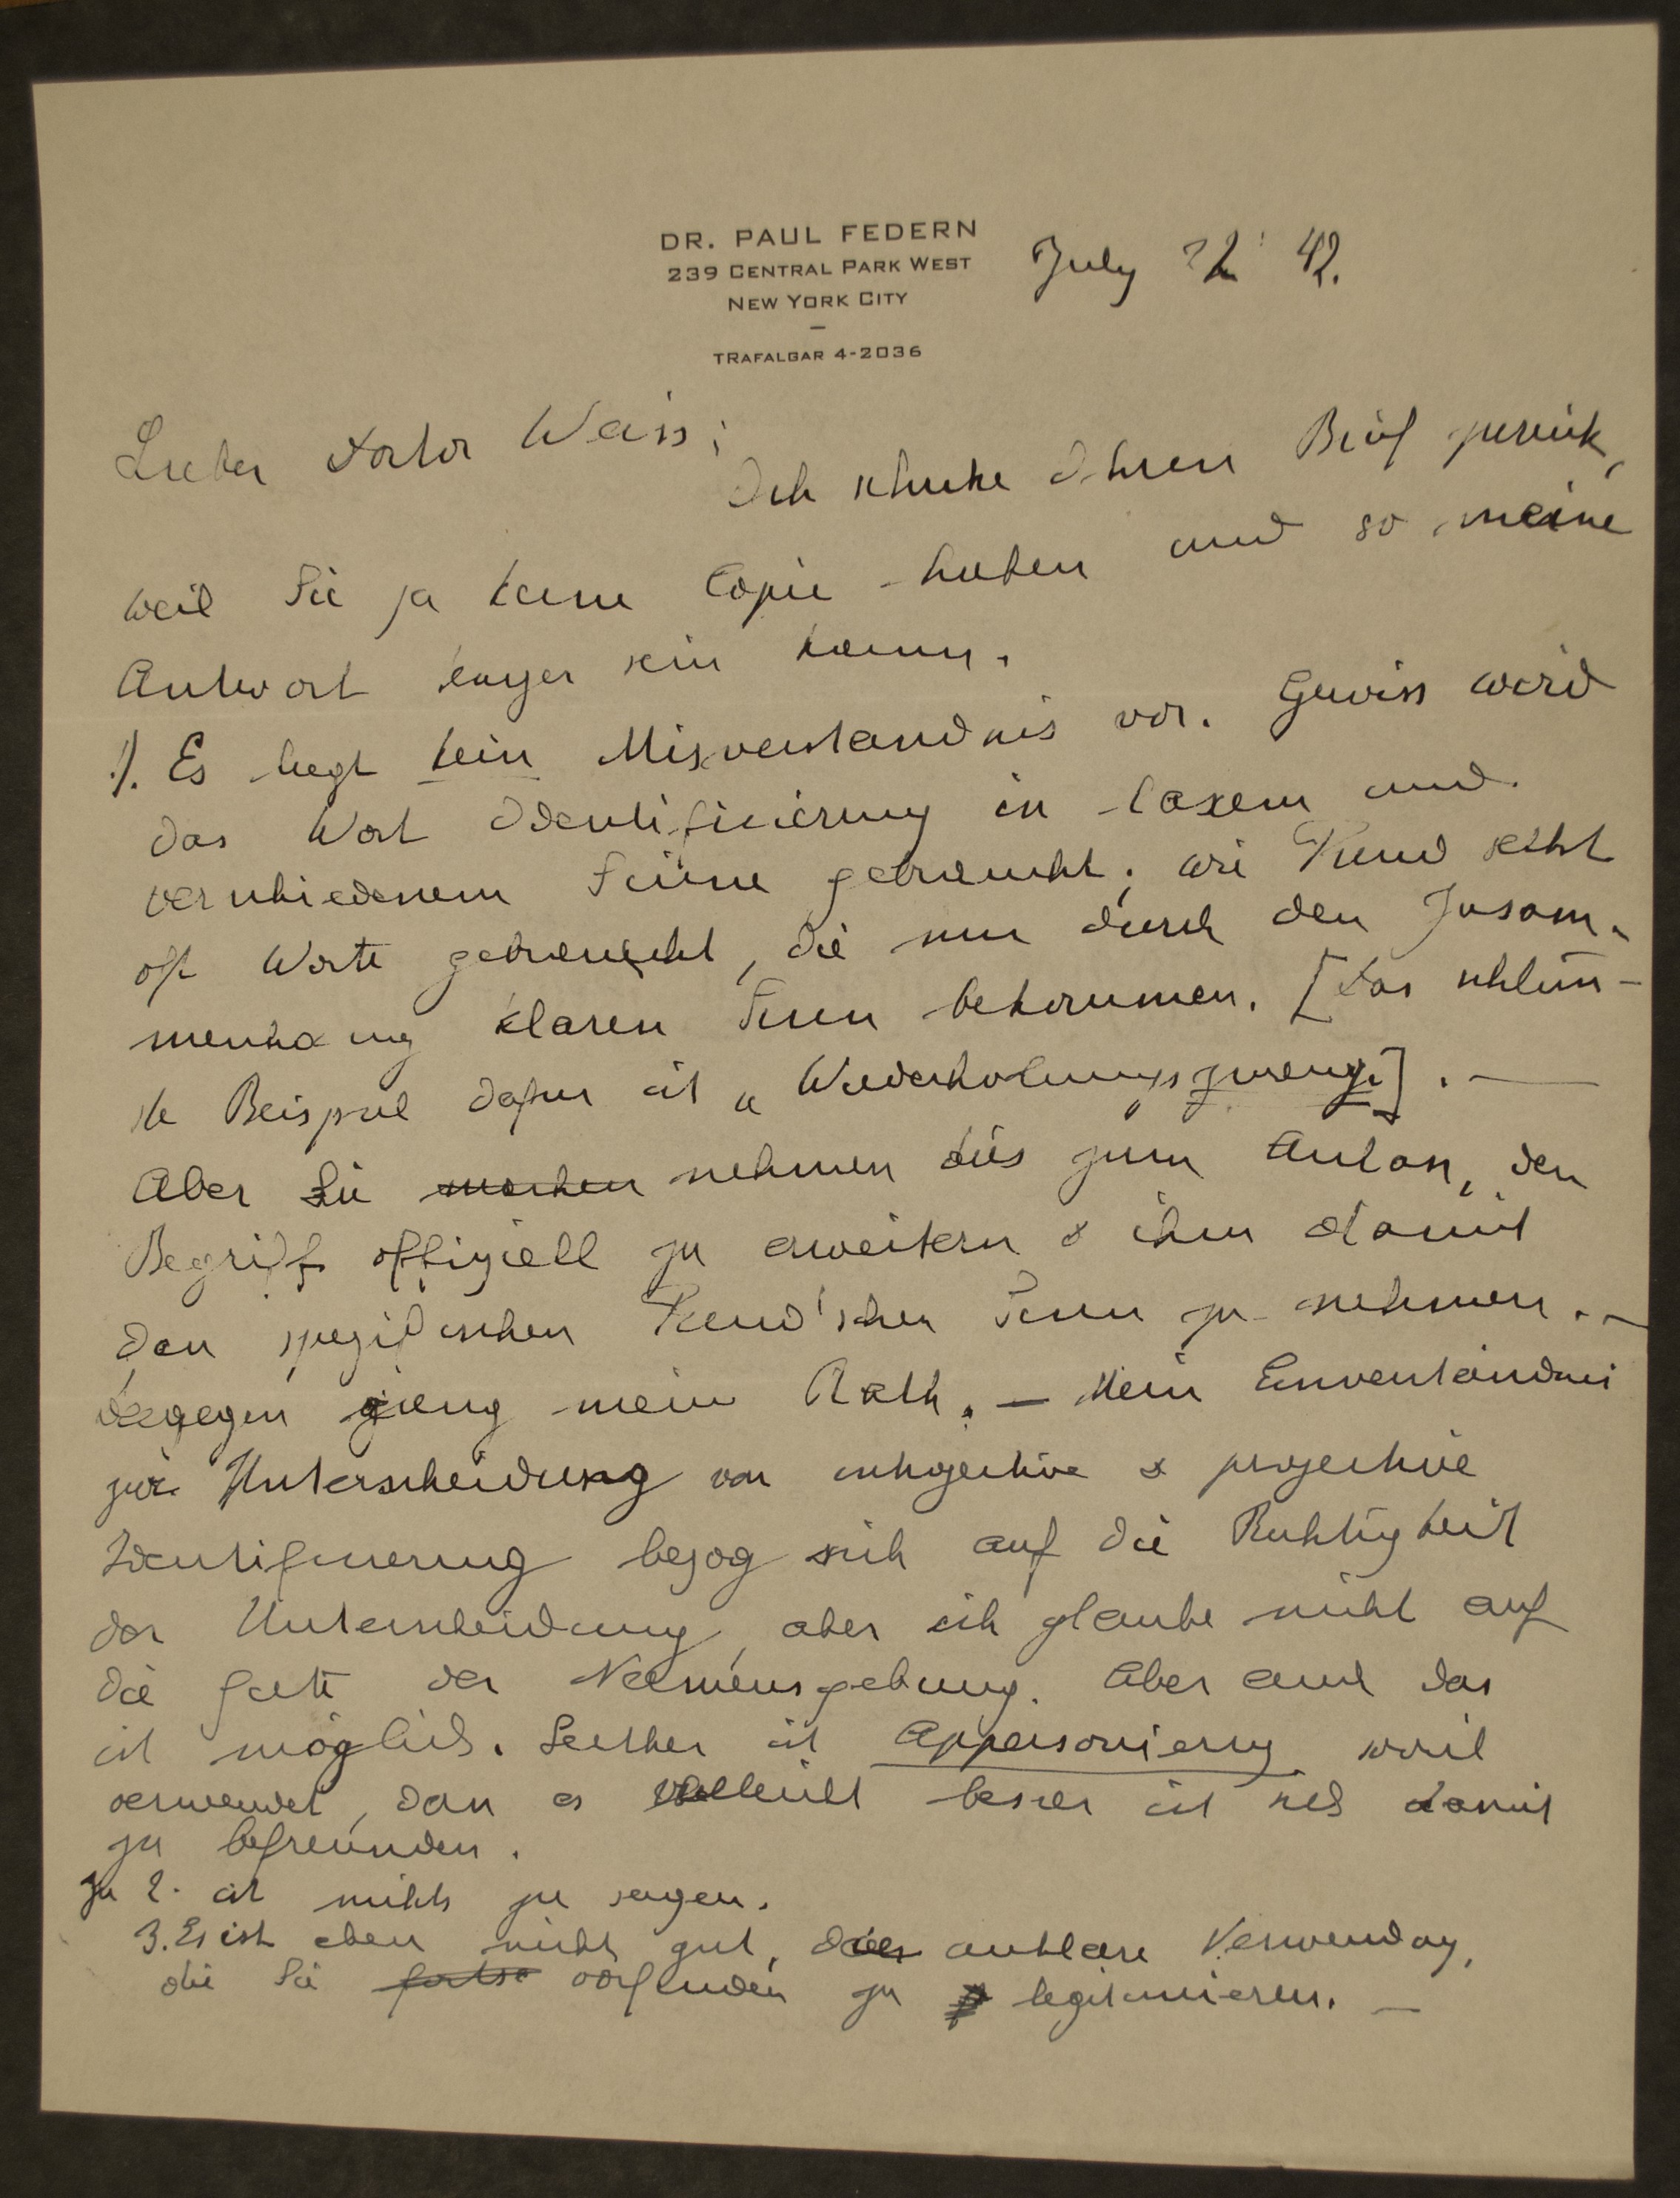 DR. PAUL FEDERN
239 CENTRAL PARK WEST
NEW YORK CITY
TRAFALGAR 4-2036
July 22 42.
Lieber Doctor Weiss;
Ich schicke Ihren Brief zurück,
weil Sie ja keine Copie haben und so meine
Antwort länger sein kann.
1). Es liegt kein Misverständnis vor. Gewiss wird
das Wort Identificierung in laxem und
verschiedenem Sinne gebraucht; wie Freud selbst
oft Worte gebraucht, die nur durch den Zusam-
menhang klaren Sinn bekommen. [Das schlim-
ste Beispiel dafür ist „Wiederholungszwang"]. —
Aber Sie machen nehmen dies zum Anlass, den
Begriff offiziell zu erweitern & ihm damit
den spezifischen Freud'schen Sinn zu nehmen. —
dagegen gieng mein Rath. — Mein Einverständnis
zur Unterscheidung von introjective & projective
Identificierung bezog sich auf die Richtigkeit
der Unterscheidung, aber ich glaube nicht auf
die Güte der Namensgebung. Aber auch das
ist möglich. Seither ist Appersonierung soviel
verwendet, dass es vielleicht besser ist sich damit
zu befreunden.
Zu 2. ist nichts zu sagen.
3. Es ist eben nicht gut, unklare Verwendung,
die Sie vorfinden zu legitimieren. —